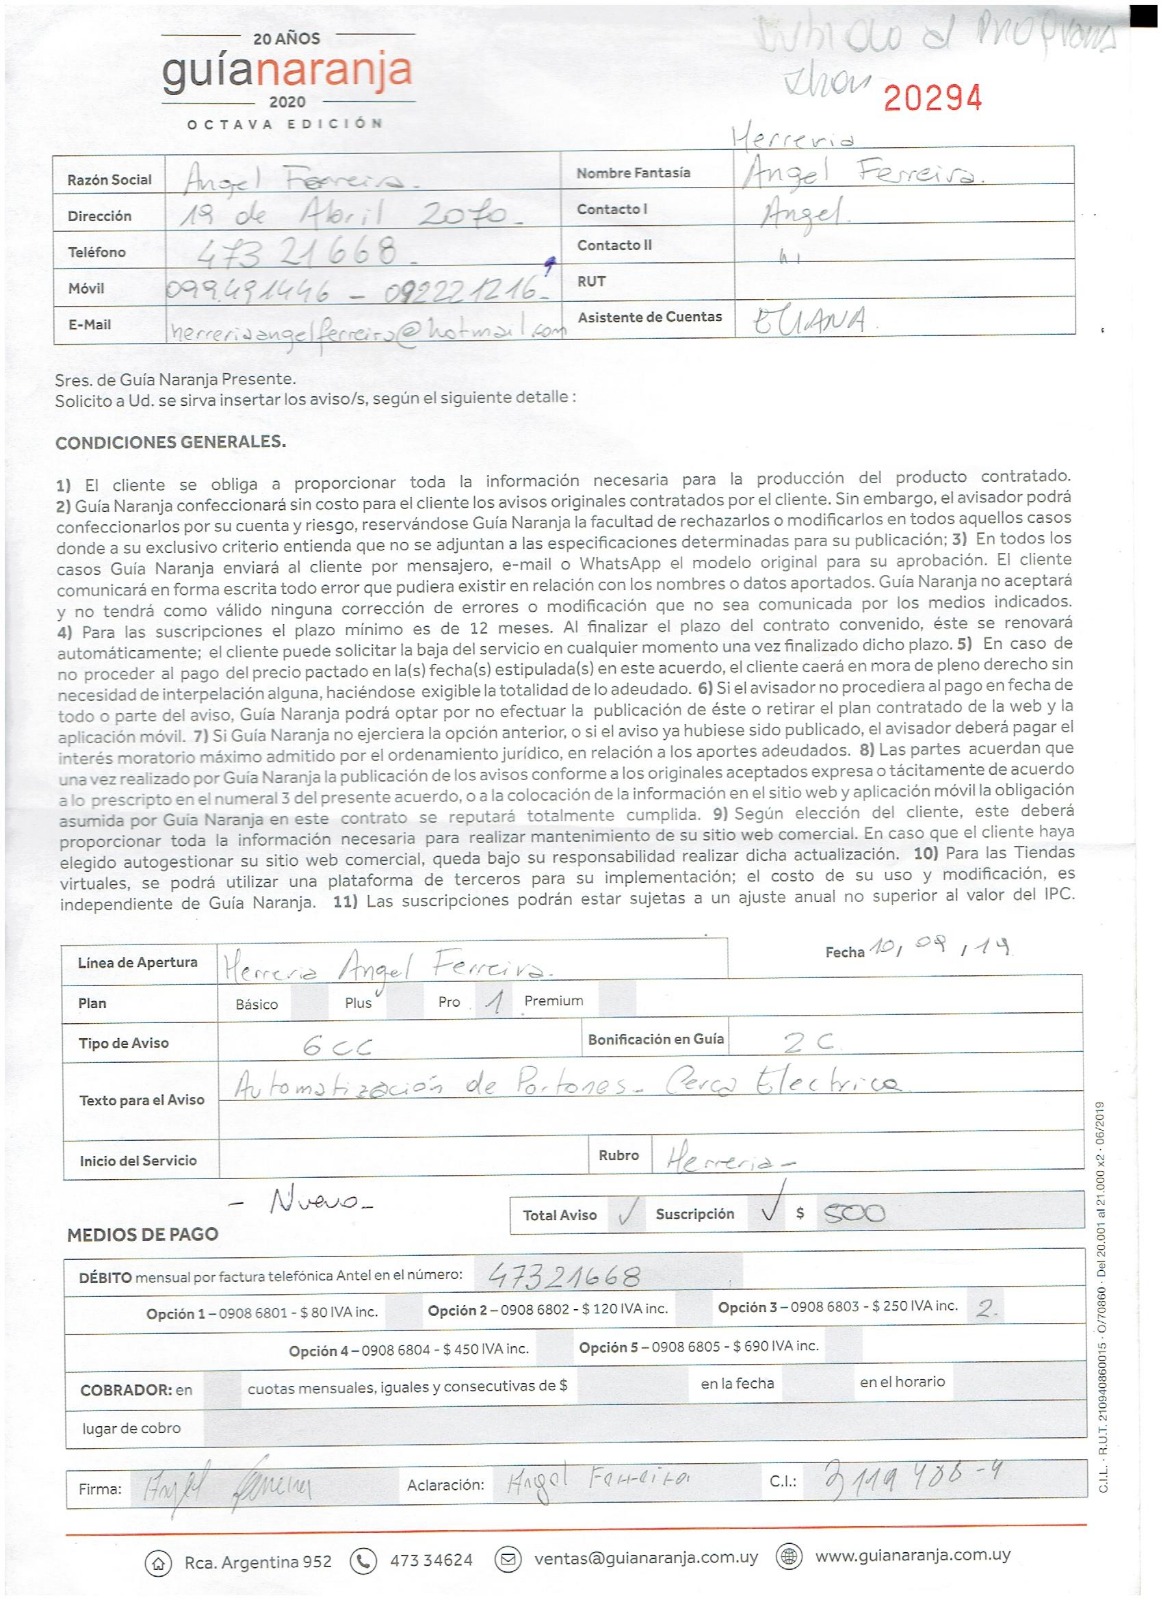 20 AÑOS
guíanaranja
2020
OCTAVA EDICIÓN
Subido al Programa
20294
Razón Social Angel Ferreira.
Nombre Fantasía Herreria Angel Ferreira.
Dirección 19 de Abril 2070.
Contacto I Angel.
Teléfono 473 21668.
Contacto II
Móvil 099.491446 - 092221216.
RUT
E-Mail herreriaangelferreira@hotmail.com
Asistente de Cuentas ELIANA.
Sres. de Guía Naranja Presente.
Solicito a Ud. se sirva insertar los aviso/s, según el siguiente detalle :
CONDICIONES GENERALES.
1) El cliente se obliga a proporcionar toda la información necesaria para la producción del producto contratado.
2) Guía Naranja confeccionará sin costo para el cliente los avisos originales contratados por el cliente. Sin embargo, el avisador podrá
confeccionarlos por su cuenta y riesgo, reservándose Guía Naranja la facultad de rechazarlos o modificarlos en todos aquellos casos
donde a su exclusivo criterio entienda que no se adjuntan a las especificaciones determinadas para su publicación; 3) En todos los
casos Guía Naranja enviará al cliente por mensajero, e-mail o WhatsApp el modelo original para su aprobación. El cliente
comunicará en forma escrita todo error que pudiera existir en relación con los nombres o datos aportados. Guía Naranja no aceptará
y no tendrá como válido ninguna corrección de errores o modificación que no sea comunicada por los medios indicados.
4) Para las suscripciones el plazo mínimo es de 12 meses. Al finalizar el plazo del contrato convenido, éste se renovará
automáticamente; el cliente puede solicitar la baja del servicio en cualquier momento una vez finalizado dicho plazo. 5) En caso de
no proceder al pago del precio pactado en la(s) fecha(s) estipulada(s) en este acuerdo, el cliente caerá en mora de pleno derecho sin
necesidad de interpelación alguna, haciéndose exigible la totalidad de lo adeudado. 6) Si el avisador no procediera al pago en fecha de
todo o parte del aviso, Guía Naranja podrá optar por no efectuar la publicación de éste o retirar el plan contratado de la web y la
aplicación móvil. 7) Si Guía Naranja no ejerciera la opción anterior, o si el aviso ya hubiese sido publicado, el avisador deberá pagar el
interés moratorio máximo admitido por el ordenamiento jurídico, en relación a los aportes adeudados. 8) Las partes acuerdan que
una vez realizado por Guía Naranja la publicación de los avisos conforme a los originales aceptados expresa o tácitamente de acuerdo
a lo prescripto en el numeral 3 del presente acuerdo, o a la colocación de la información en el sitio web y aplicación móvil la obligación
asumida por Guía Naranja en este contrato se reputará totalmente cumplida. 9) Según elección del cliente, este deberá
proporcionar toda la información necesaria para realizar mantenimiento de su sitio web comercial. En caso que el cliente haya
elegido autogestionar su sitio web comercial, queda bajo su responsabilidad realizar dicha actualización. 10) Para las Tiendas
virtuales, se podrá utilizar una plataforma de terceros para su implementación; el costo de su uso y modificación, es
independiente de Guía Naranja. 11) Las suscripciones podrán estar sujetas a un ajuste anual no superior al valor del IPC.
Línea de Apertura Herreria Angel Ferreira.
Fecha 10, 09, 19
Plan Básico Plus Pro 1 Premium
Tipo de Aviso 6CC Bonificación en Guía 2C
Texto para el Aviso Automatización de Portones - Cerca Electrica
Inicio del Servicio Rubro Herreria -
- Nuevo -
Total Aviso ✓ Suscripción ✓ $ 500
MEDIOS DE PAGO
DÉBITO mensual por factura telefónica Antel en el número: 47321668
Opción 1 – 0908 6801 - $ 80 IVA inc. Opción 2 – 0908 6802 - $ 120 IVA inc. Opción 3 – 0908 6803 - $ 250 IVA inc. 2.
Opción 4 – 0908 6804 - $ 450 IVA inc. Opción 5 – 0908 6805 - $ 690 IVA inc.
COBRADOR: en cuotas mensuales, iguales y consecutivas de $ en la fecha en el horario
lugar de cobro
Firma: Angel Ferreira Aclaración: Angel Ferreira C.I.: 3119488-4
C.I.L. - R.U.T. 210940860015 - O/70860 - Del 20.001 al 21.000 x2 - 06/2019
Rca. Argentina 952 473 34624 ventas@guianaranja.com.uy www.guianaranja.com.uy